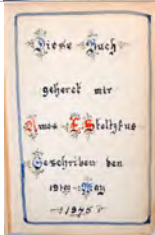 Diese Buch
geheret mir
Amos E. Stoltzfus
Geschriben den
19 ten May
1975